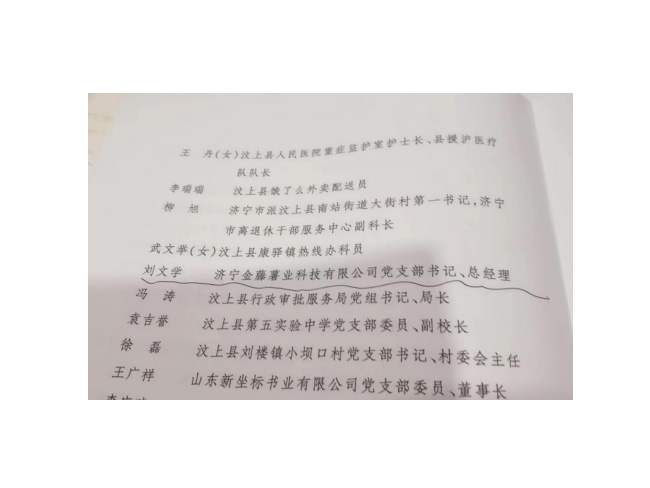 王 丹(女)汶上县人民医院重症监护室护士长、县援沪医疗
队队长
李瑞瑞 汶上县饿了么外卖配送员
柳 旭 济宁市派汶上县南站街道大街村第一书记,济宁
市离退休干部服务中心副科长
武文举(女)汶上县康驿镇热线办科员
刘文学 济宁金藤薯业科技有限公司党支部书记、总经理
冯 涛 汶上县行政审批服务局党组书记、局长
袁吉誉 汶上县第五实验中学党支部委员、副校长
徐 磊 汶上县刘楼镇小坝口村党支部书记、村委会主任
王广祥 山东新坐标书业有限公司党支部委员、董事长